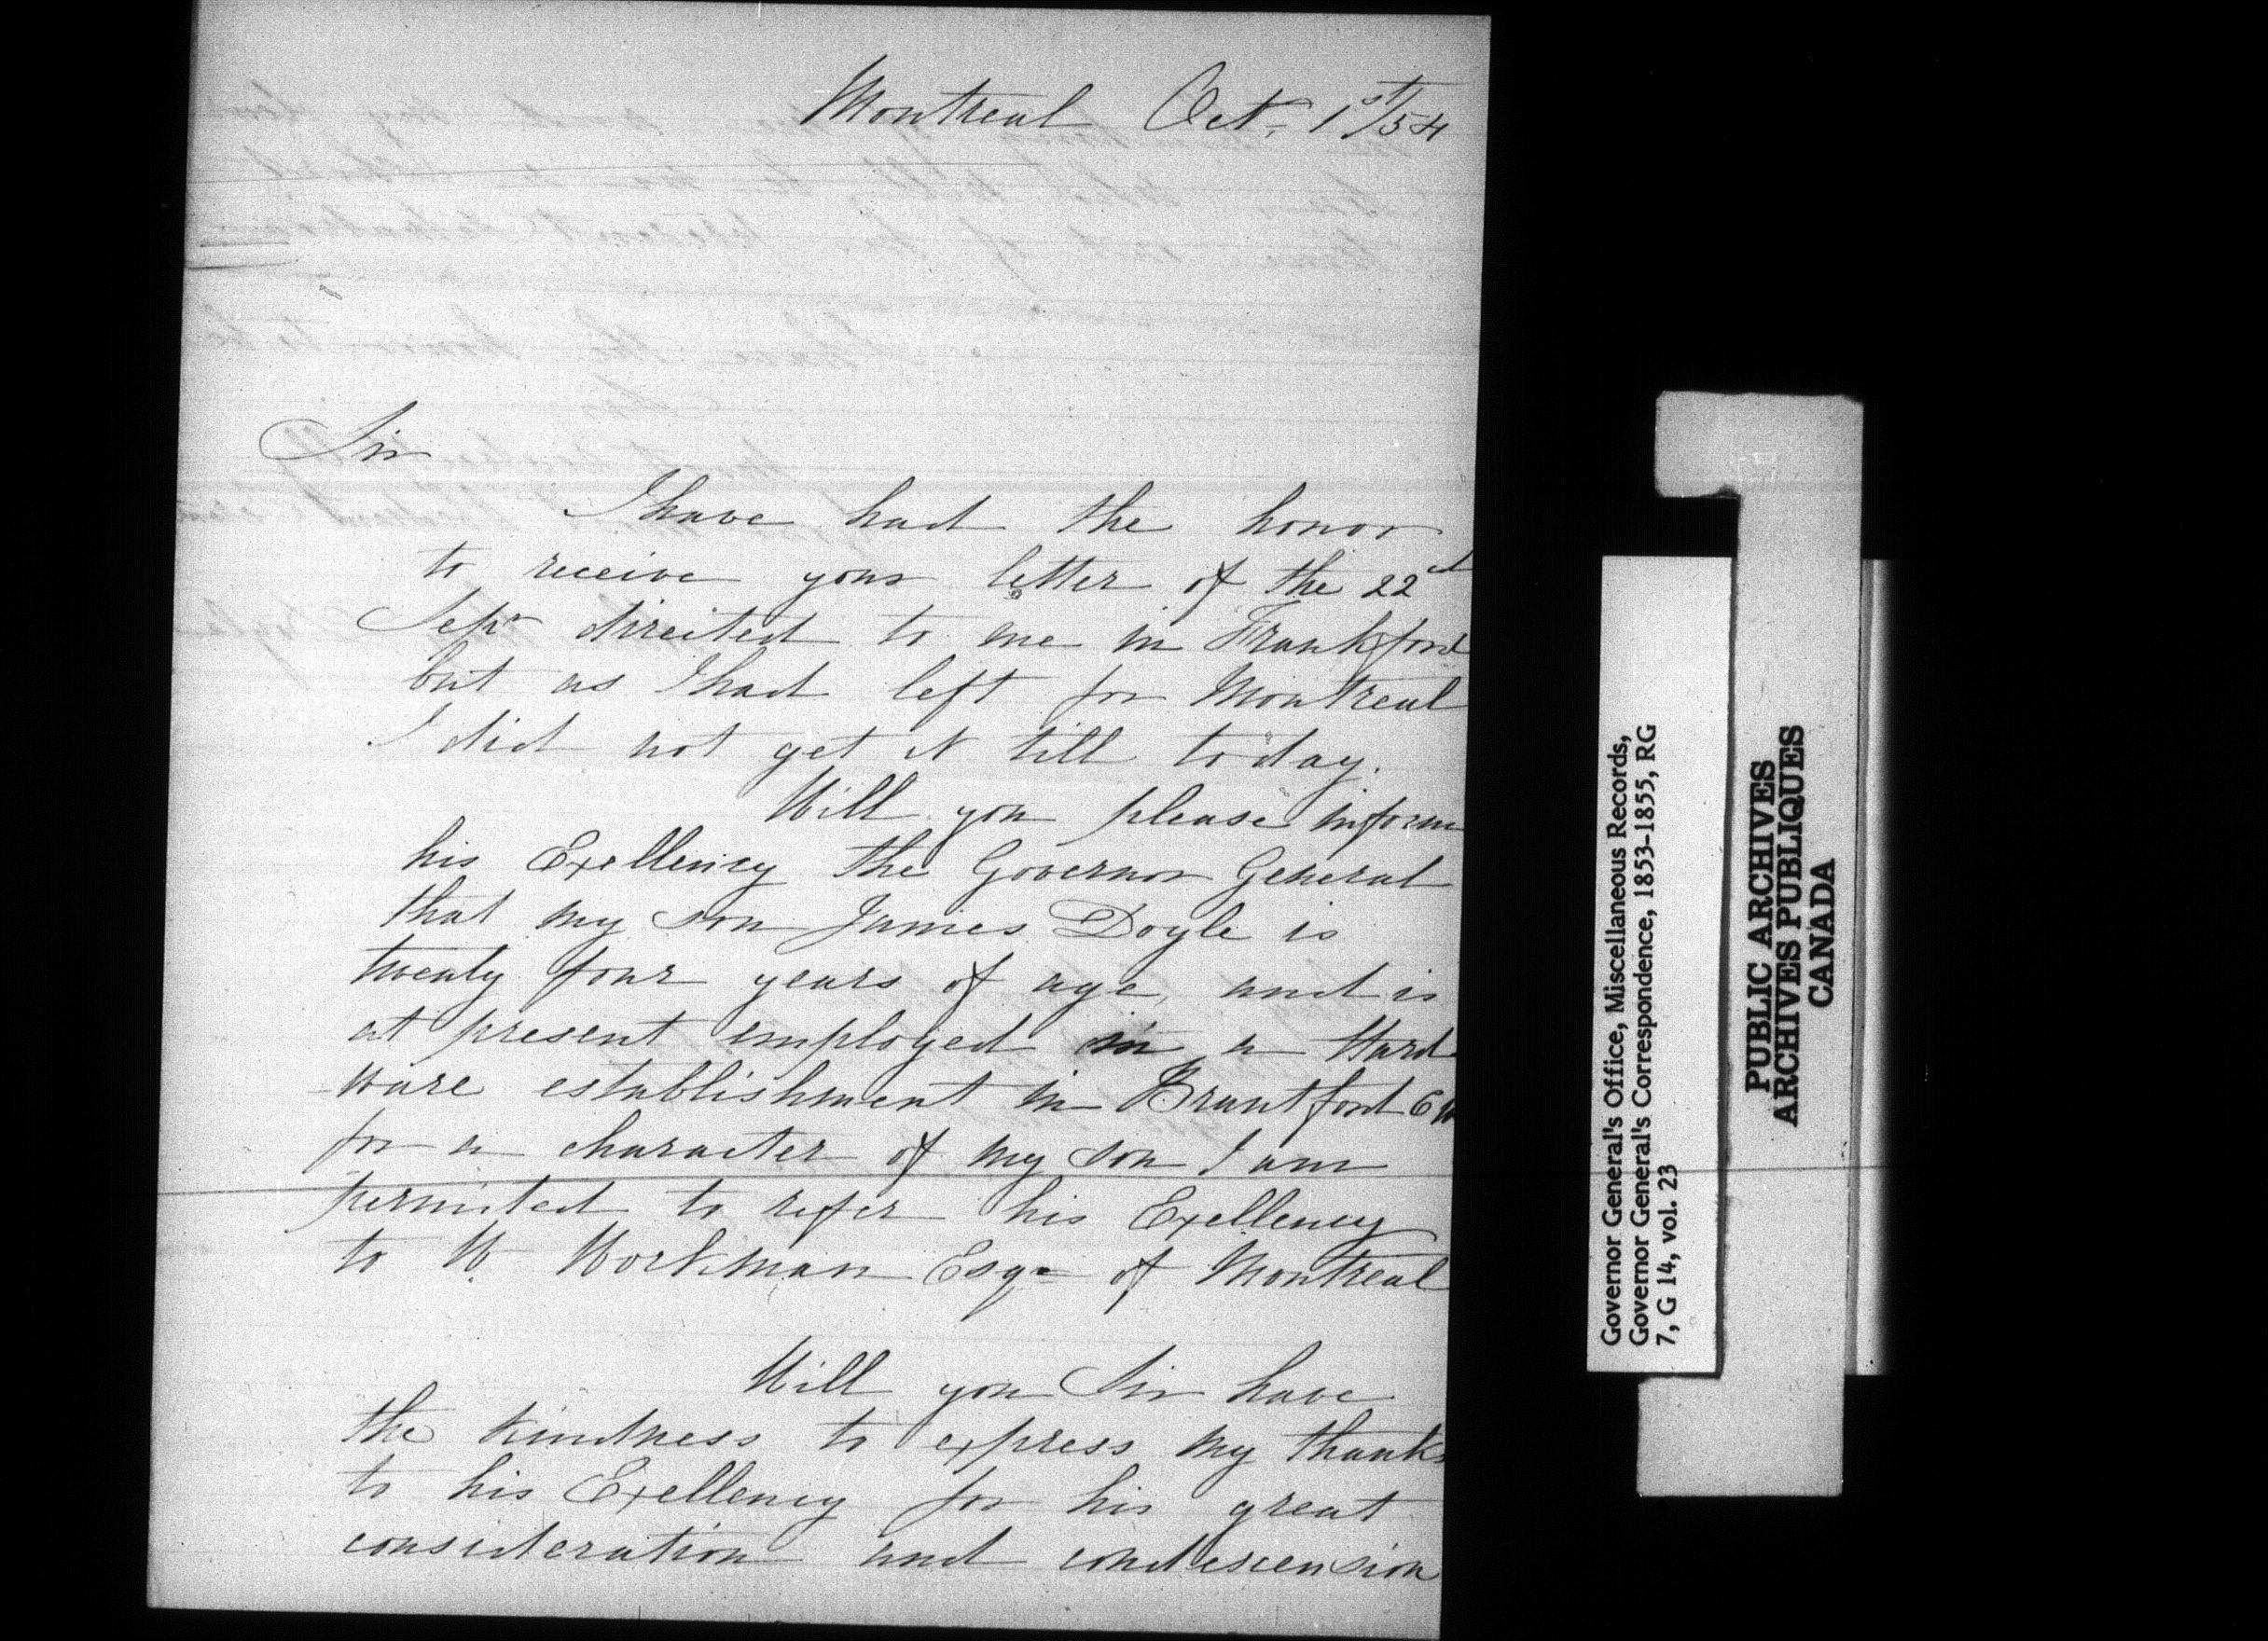 Montreal Oct. 1st/54
Sir
I have had the honor
to receive your letter of the 22nd
Sepr directed to me in Frankford
but as I had left for Montreal
I did not get it till today.
Will you please inform
his Exellency the Governor General
that my son James Doyle is
twenty four years of age, and is
at present employed in a Hard
-ware establishment in Brantford CW
for a character of my son I am
permited to refer his Exellency
to W Workman Esqr of Montreal
Will you Sir have
the kindness to express my thanks
to his Exellency for his great
consideration and condescension
Governor General's Office, Miscellaneous Records,
Governor General's Correspondence, 1853-1855, RG
7, G 14, vol. 23
PUBLIC ARCHIVES
ARCHIVES PUBLIQUES
CANADA